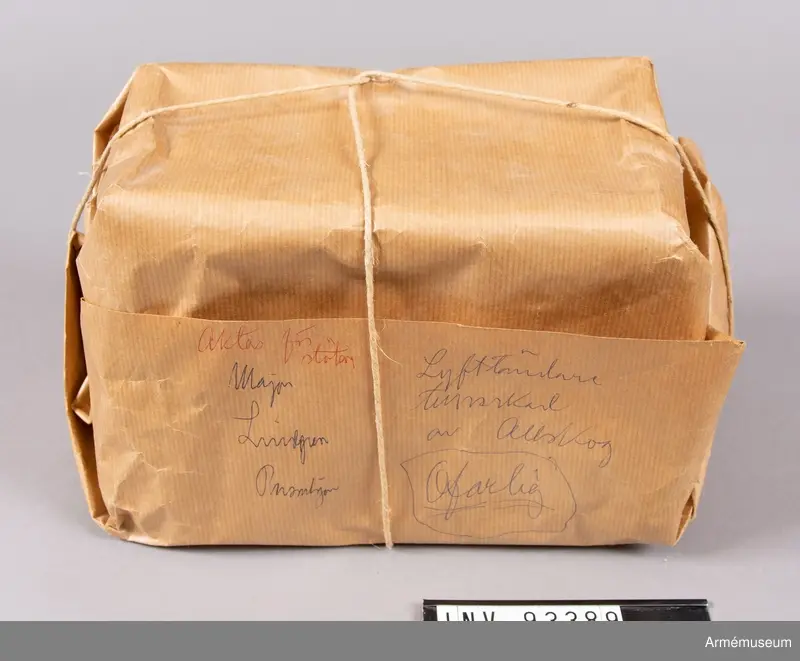 Aktas för
stötar
Major
Lindgren
Lyfttändare
tillverkad
av Allskog
Ofarlig
INV. 93389
Armémuseum